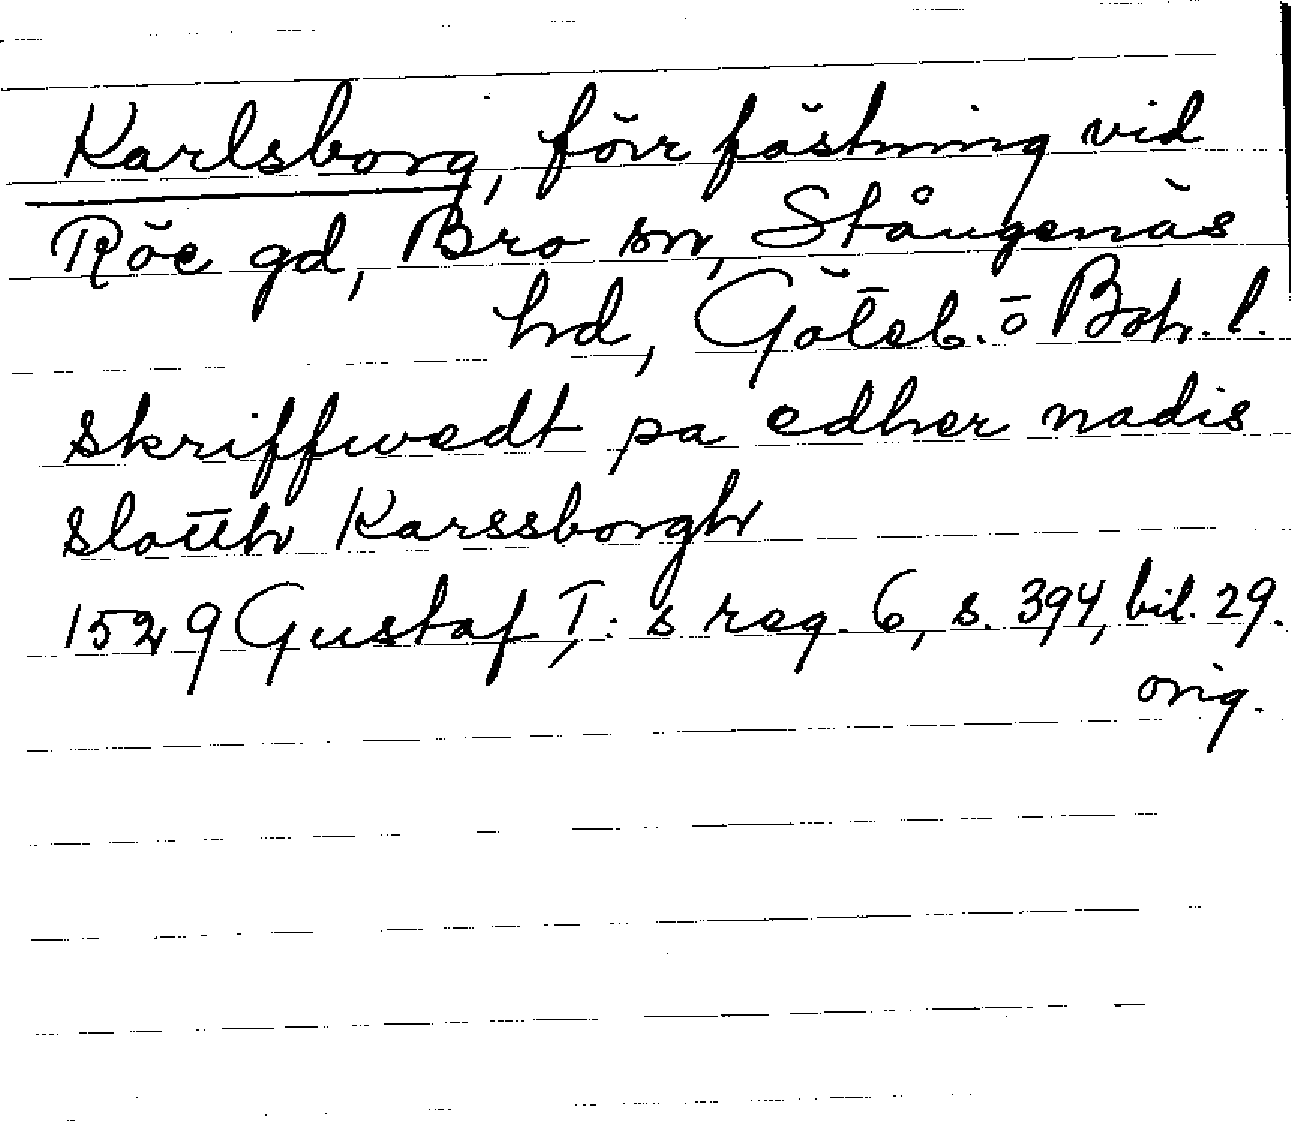 Karlsborg, förr fästning vid
Röe gd, Bro sn, Stångenäs
hd, Göteb. o Boh. l.
skriffwedt pa edher nadis
slotth Karssborgh
1529 Gustaf I:s reg. 6, s. 394, bil. 29.
orig.